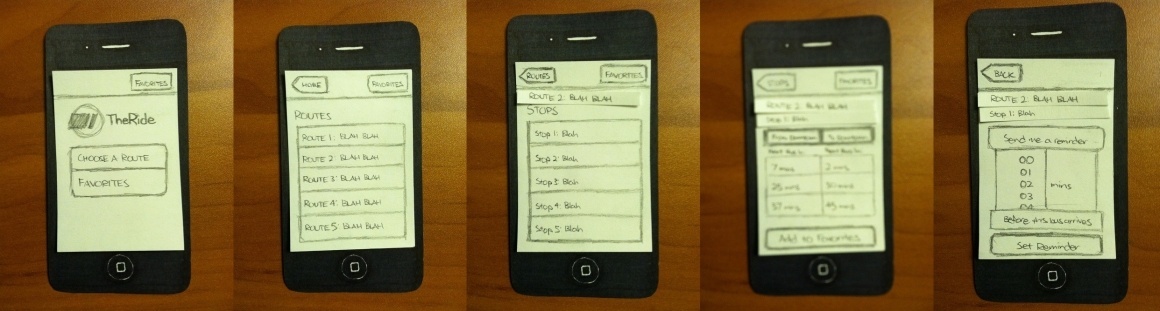 FAVORITES
TheRide
CHOOSE A ROUTE
FAVORITES
HOME
FAVORITES
ROUTES
ROUTE 1: BLAH BLAH
ROUTE 2: BLAH BLAH
ROUTE 3: BLAH BLAH
ROUTE 4: BLAH BLAH
ROUTE 5: BLAH BLAH
ROUTES
FAVORITES
ROUTE 2: BLAH BLAH
STOPS
Stop 1: Blah
Stop 2: Blah
Stop 3: Blah
Stop 4: Blah
Stop 5: Blah
STOPS
FAVORITES
ROUTE 2: BLAH BLAH
Stop 1: Blah
7 mins
2 mins
25 mins
mins
mins
45 mins
Add to Favorites
BACK
ROUTE 2: BLAH BLAH
Stop 1: Blah
Send me a reminder
00
01
02
mins
03
04
Before this bus arrives
Set Reminder